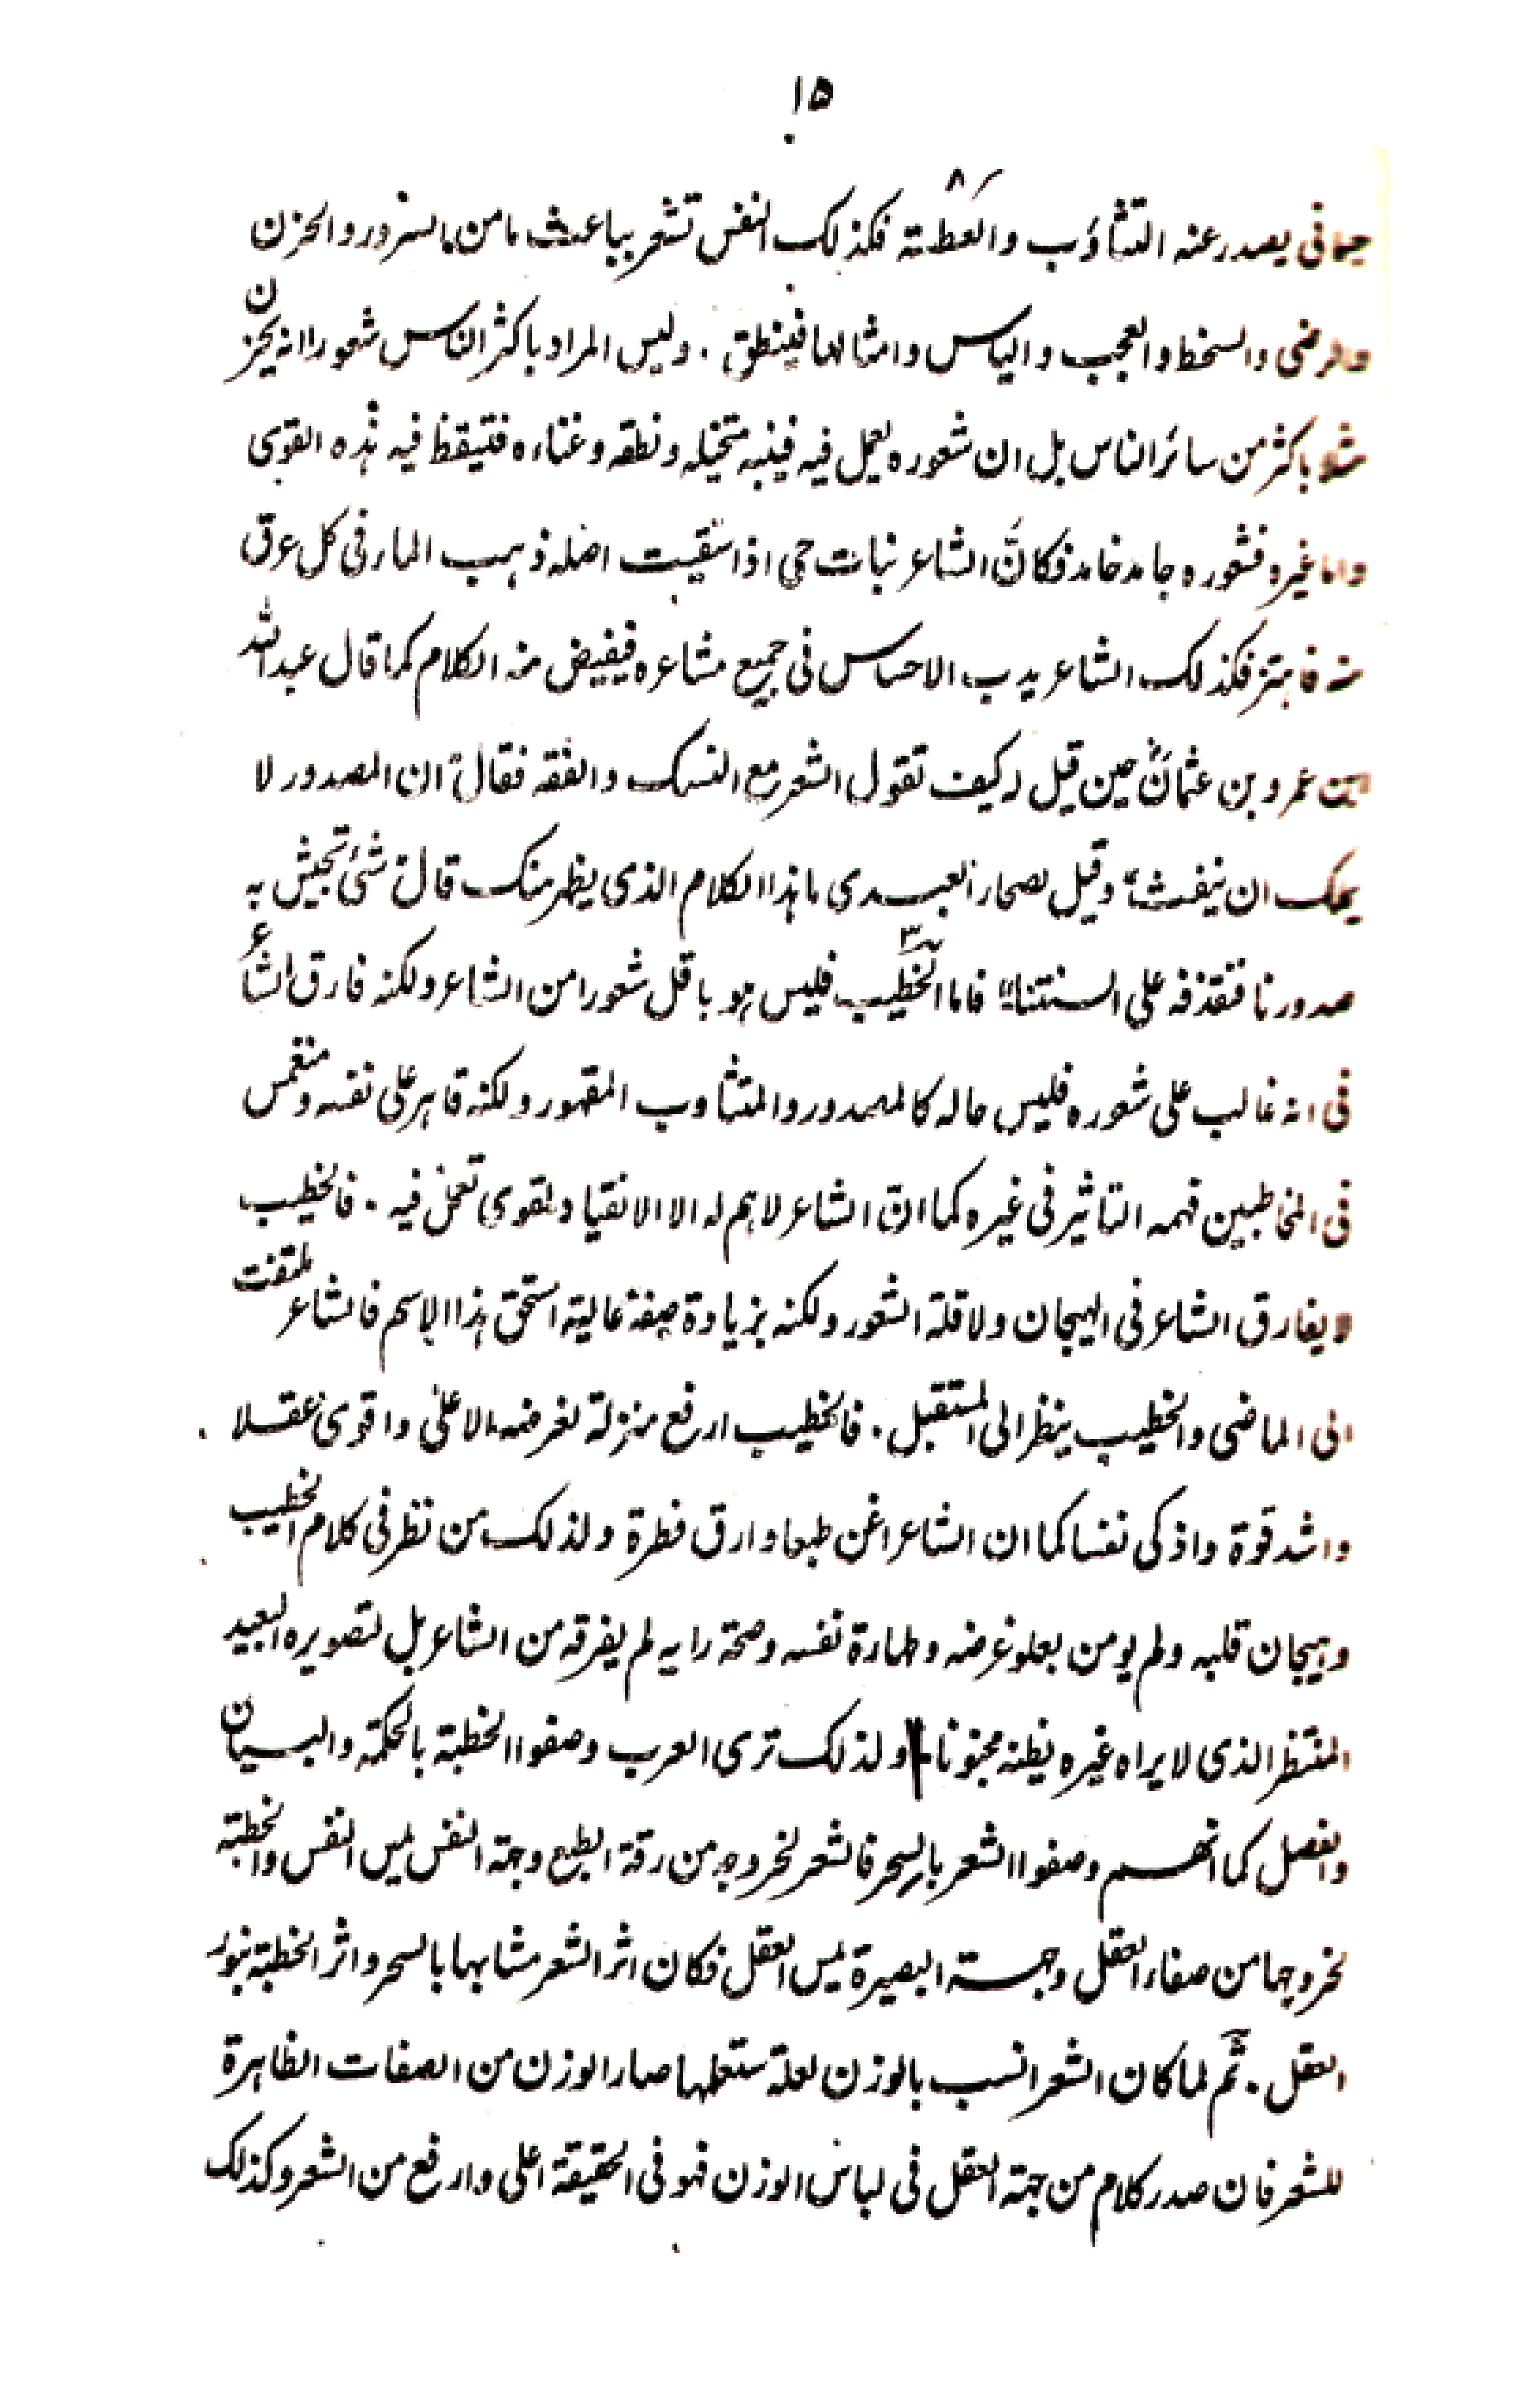 ١٥
جسمانی یصدر عنه التثاؤب والعطسة فکذلک النفس تشعر بباعث ما من السرور والحزن
والرضی والسخط والعجب والیاس وامثالها فینطق. ولیس المراد باکثر الناس شعورا انه یحزن
مثلا باکثر من سائر الناس بل ان شعوره یعمل فیه فینبه متخیله ونطقه وغناءه فتیقظ فیه هذه القوی
واما غیره فشعوره جامد خامد فکانّ الشاعر نبات حی اذا سقیت اصله ذهب الماء فی کل عرق
منه فاهتز فکذلک الشاعر یدب الاحساس فی جمیع مشاعره فیفیض منه الکلام کما قال عبد الله
ابن عمرو بن عثمانؓ حین قیل له کیف تقول الشعر مع النسک والفقه فقال "ان المصدور لا
یملک ان ینفث" وقیل لصحار العبدی ما هذا الکلام الذی یظهر منک قال "شئ تجیش به
صدورنا فتقذفه علی السنتنا" فاما الخطیب فلیس هو باقل شعورا من الشاعر ولکنه فارق الشاعر
فی انه غالب علی شعوره فلیس حاله کالمصدور والمتثاوب المقهور ولکنه قاهر علی نفسه ومنغمس
فی المخاطبین فهمه التاثیر فی غیره کما ان الشاعر لا هم له الا الانقیاد لقوی تعمل فیه. فالخطیب
لا یفارق الشاعر فی الهیجان ولا قلة الشعور ولکنه بزیادة صفة عالیة استحق هذا الاسم فالشاعر ملتفت
الی الماضی والخطیب ینظر الی المستقبل. فالخطیب ارفع منزلة لغرضه الاعلی واقوی عقلا
واشد قوة واذکی نفسا کما ان الشاعر اغن طبعا وارق فطرة ولذلک من نظر فی کلام الخطیب
وهیجان قلبه ولم یومن بعلو غرضه وطهارة نفسه وصحة رایه لم یفرقه من الشاعر بل لتصویره البعید
المنتظر الذی لا یراه غیره یظنه مجنونا ولذلک تری العرب وصفوا الخطبة بالحکمة والبیان
والفصل کما انهم وصفوا الشعر بالسحر فالشعر لخروجه من رقة الطبع وجهة النفس یمس النفس والخطبة
لخروجها من صفاء العقل وجهة البصیرة یمس العقل فکان اثر الشعر مشابها بالسحر واثر الخطبة بنور
العقل. ثم لما کان الشعر انسب بالوزن لعلة ستعلمها صار الوزن من الصفات الظاهرة
للشعر فان صدر کلام من جهة العقل فی لباس الوزن فهو فی الحقیقة اعلی وارفع من الشعر وکذلک